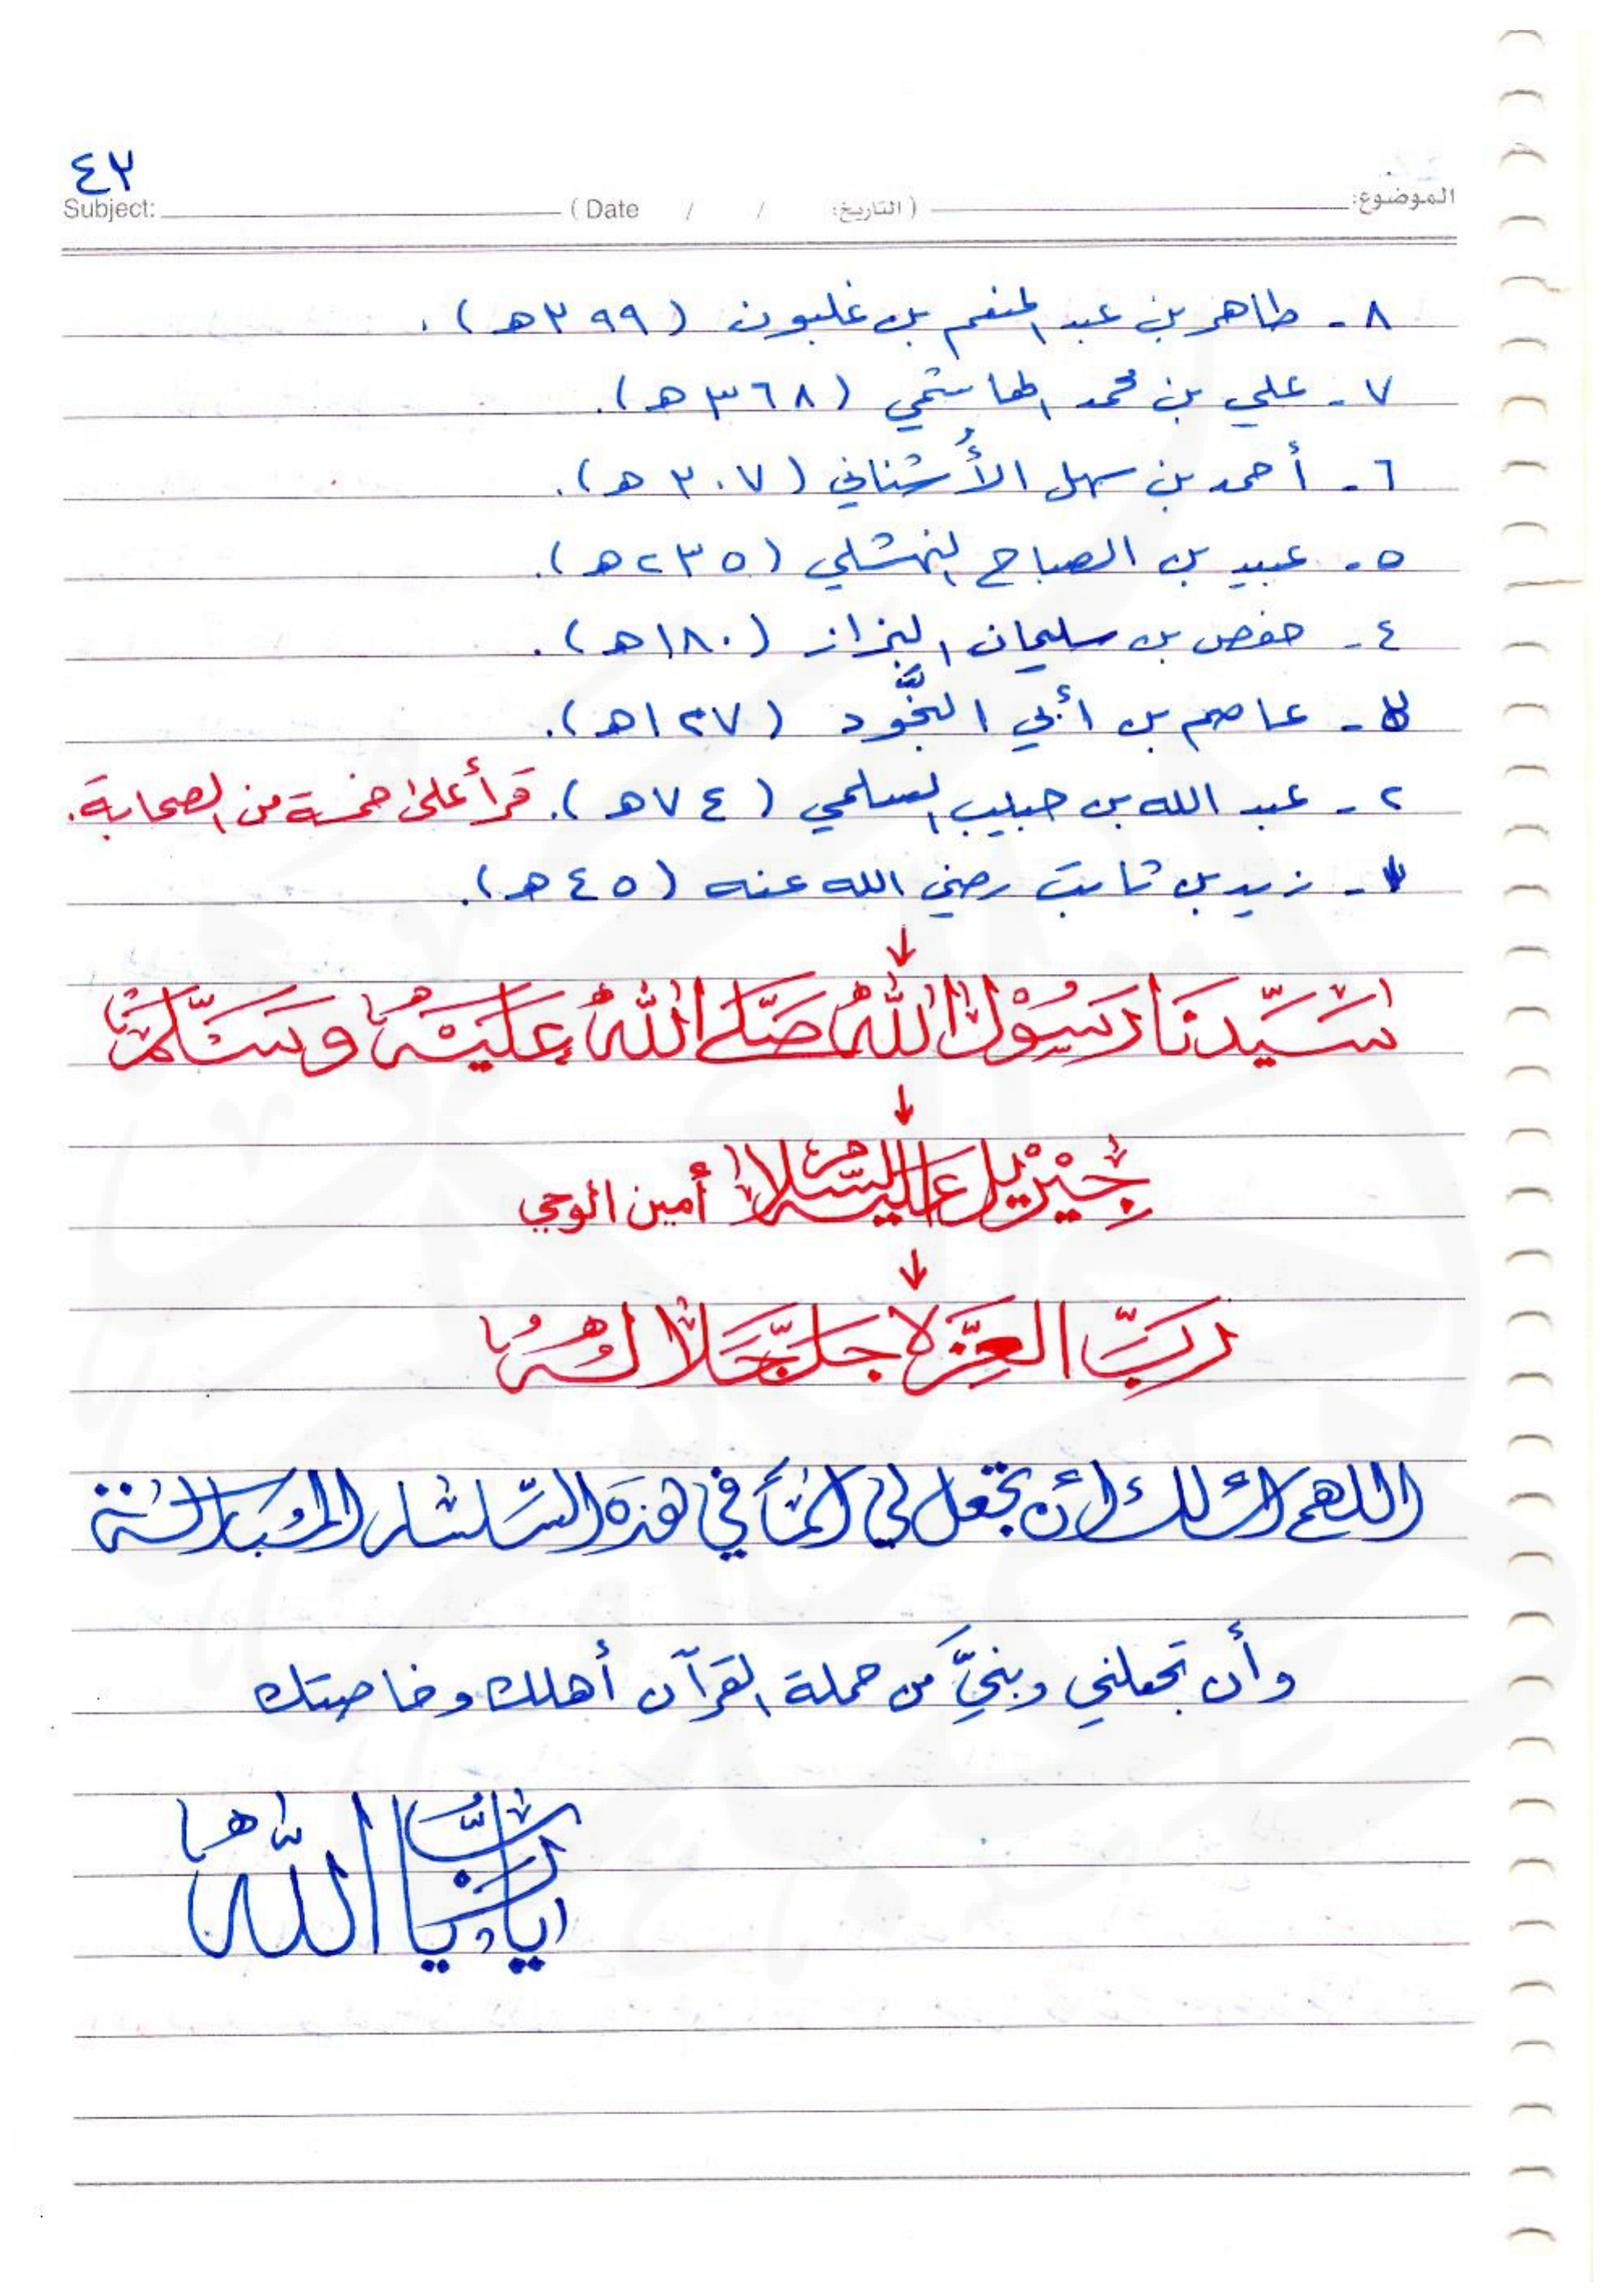 ٤٣
Subject: ( Date / / التاريخ: ) الموضوع:
٨ - طاهر بن عبد المنعم بن غلبون (٣٩٩ هـ).
٧ - علي بن محمد الهاشمي (٣٦٨ هـ).
٦ - أحمد بن سهل الأُشناني (٣٠٧ هـ).
٥ - عبيد بن الصباح النهشلي (٢٣٥ هـ).
٤ - حفص بن سليمان البزاز (١٨٠ هـ).
٣ - عاصم بن أبي النَّجُود (١٢٧ هـ).
٢ - عبد الله بن حبيب السلمي (٧٤ هـ). قرأ على خمسة من الصحابة.
١ - زيد بن ثابت رضي الله عنه (٤٥ هـ).
↓
سَيِّدنَا رَسُوْل اللهِ صَلَّى اللهُ عَلَيْهِ وَسَلَّمَ
↓
جِبْرِيْل عَلَيْهِ السَّلَام أمين الوحي
↓
رَبّ العِزَّة جَلَّ جَلَالُهُ
اللهم أسألك أن تجعل لي اسْمًا في هذه السِّلسلة المُبَاركة
وأن تجعلني وبنيَّ من حملة القرآن أهلك وخاصتك
يا ربّ يا الله